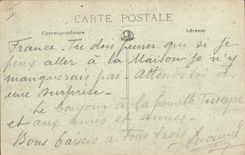 CARTE POSTALE
Correspondance Adresse
France. Tu dois penser que si je
peux aller à la Maison je n'y
manquerais pas. Attends toi à
une surprise.
Le bonjour à la famille
et aux amis et amies.
Bons baisers à tous trois